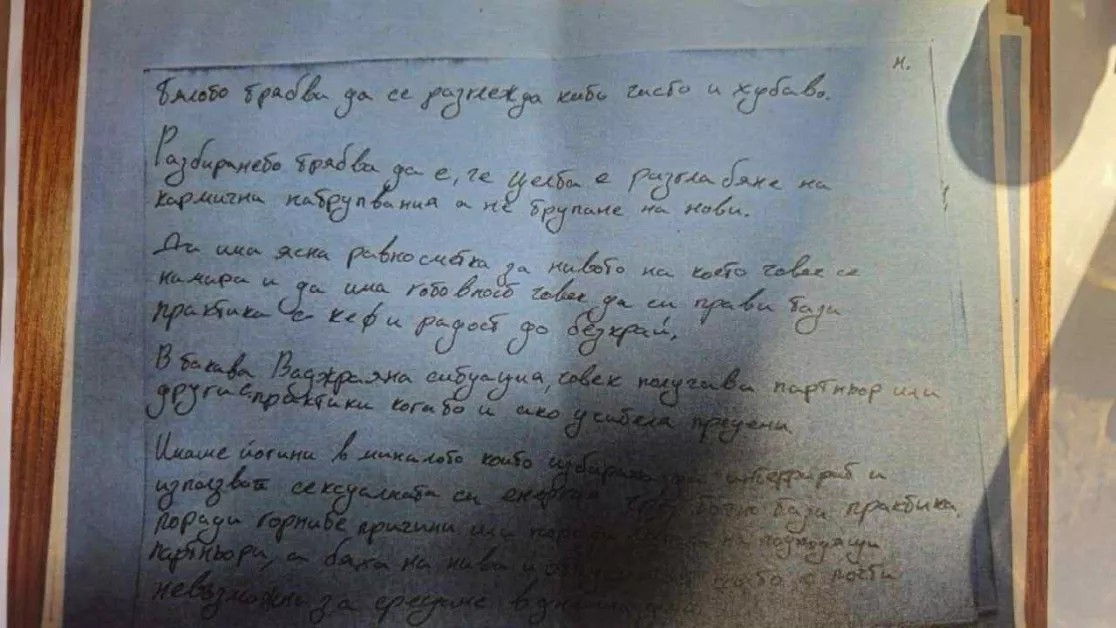 н.
Тялото трябва да се разнежда като чисто и хубаво.
Разбирането трябва да е, че целта е разтлабяне на
кармични натрупвания а не трупане на нови.
Да има ясна равносметка за нивото на което човек се
намира и да има готовност човек да си прави тази
практика с кеф и радост до безкрай.
В такава Ваджраяна ситуация, човек получава партньор или
други практики когато и ако учителя прецени.
Имаме йогини в миналото които избираха да интегрират и
използват сексуалната си енергия чрез точно тази практика,
поради горните причини или поради на подходящи
партньори, а бяха на нива и което е почти
невъзможни за срещане в днешни